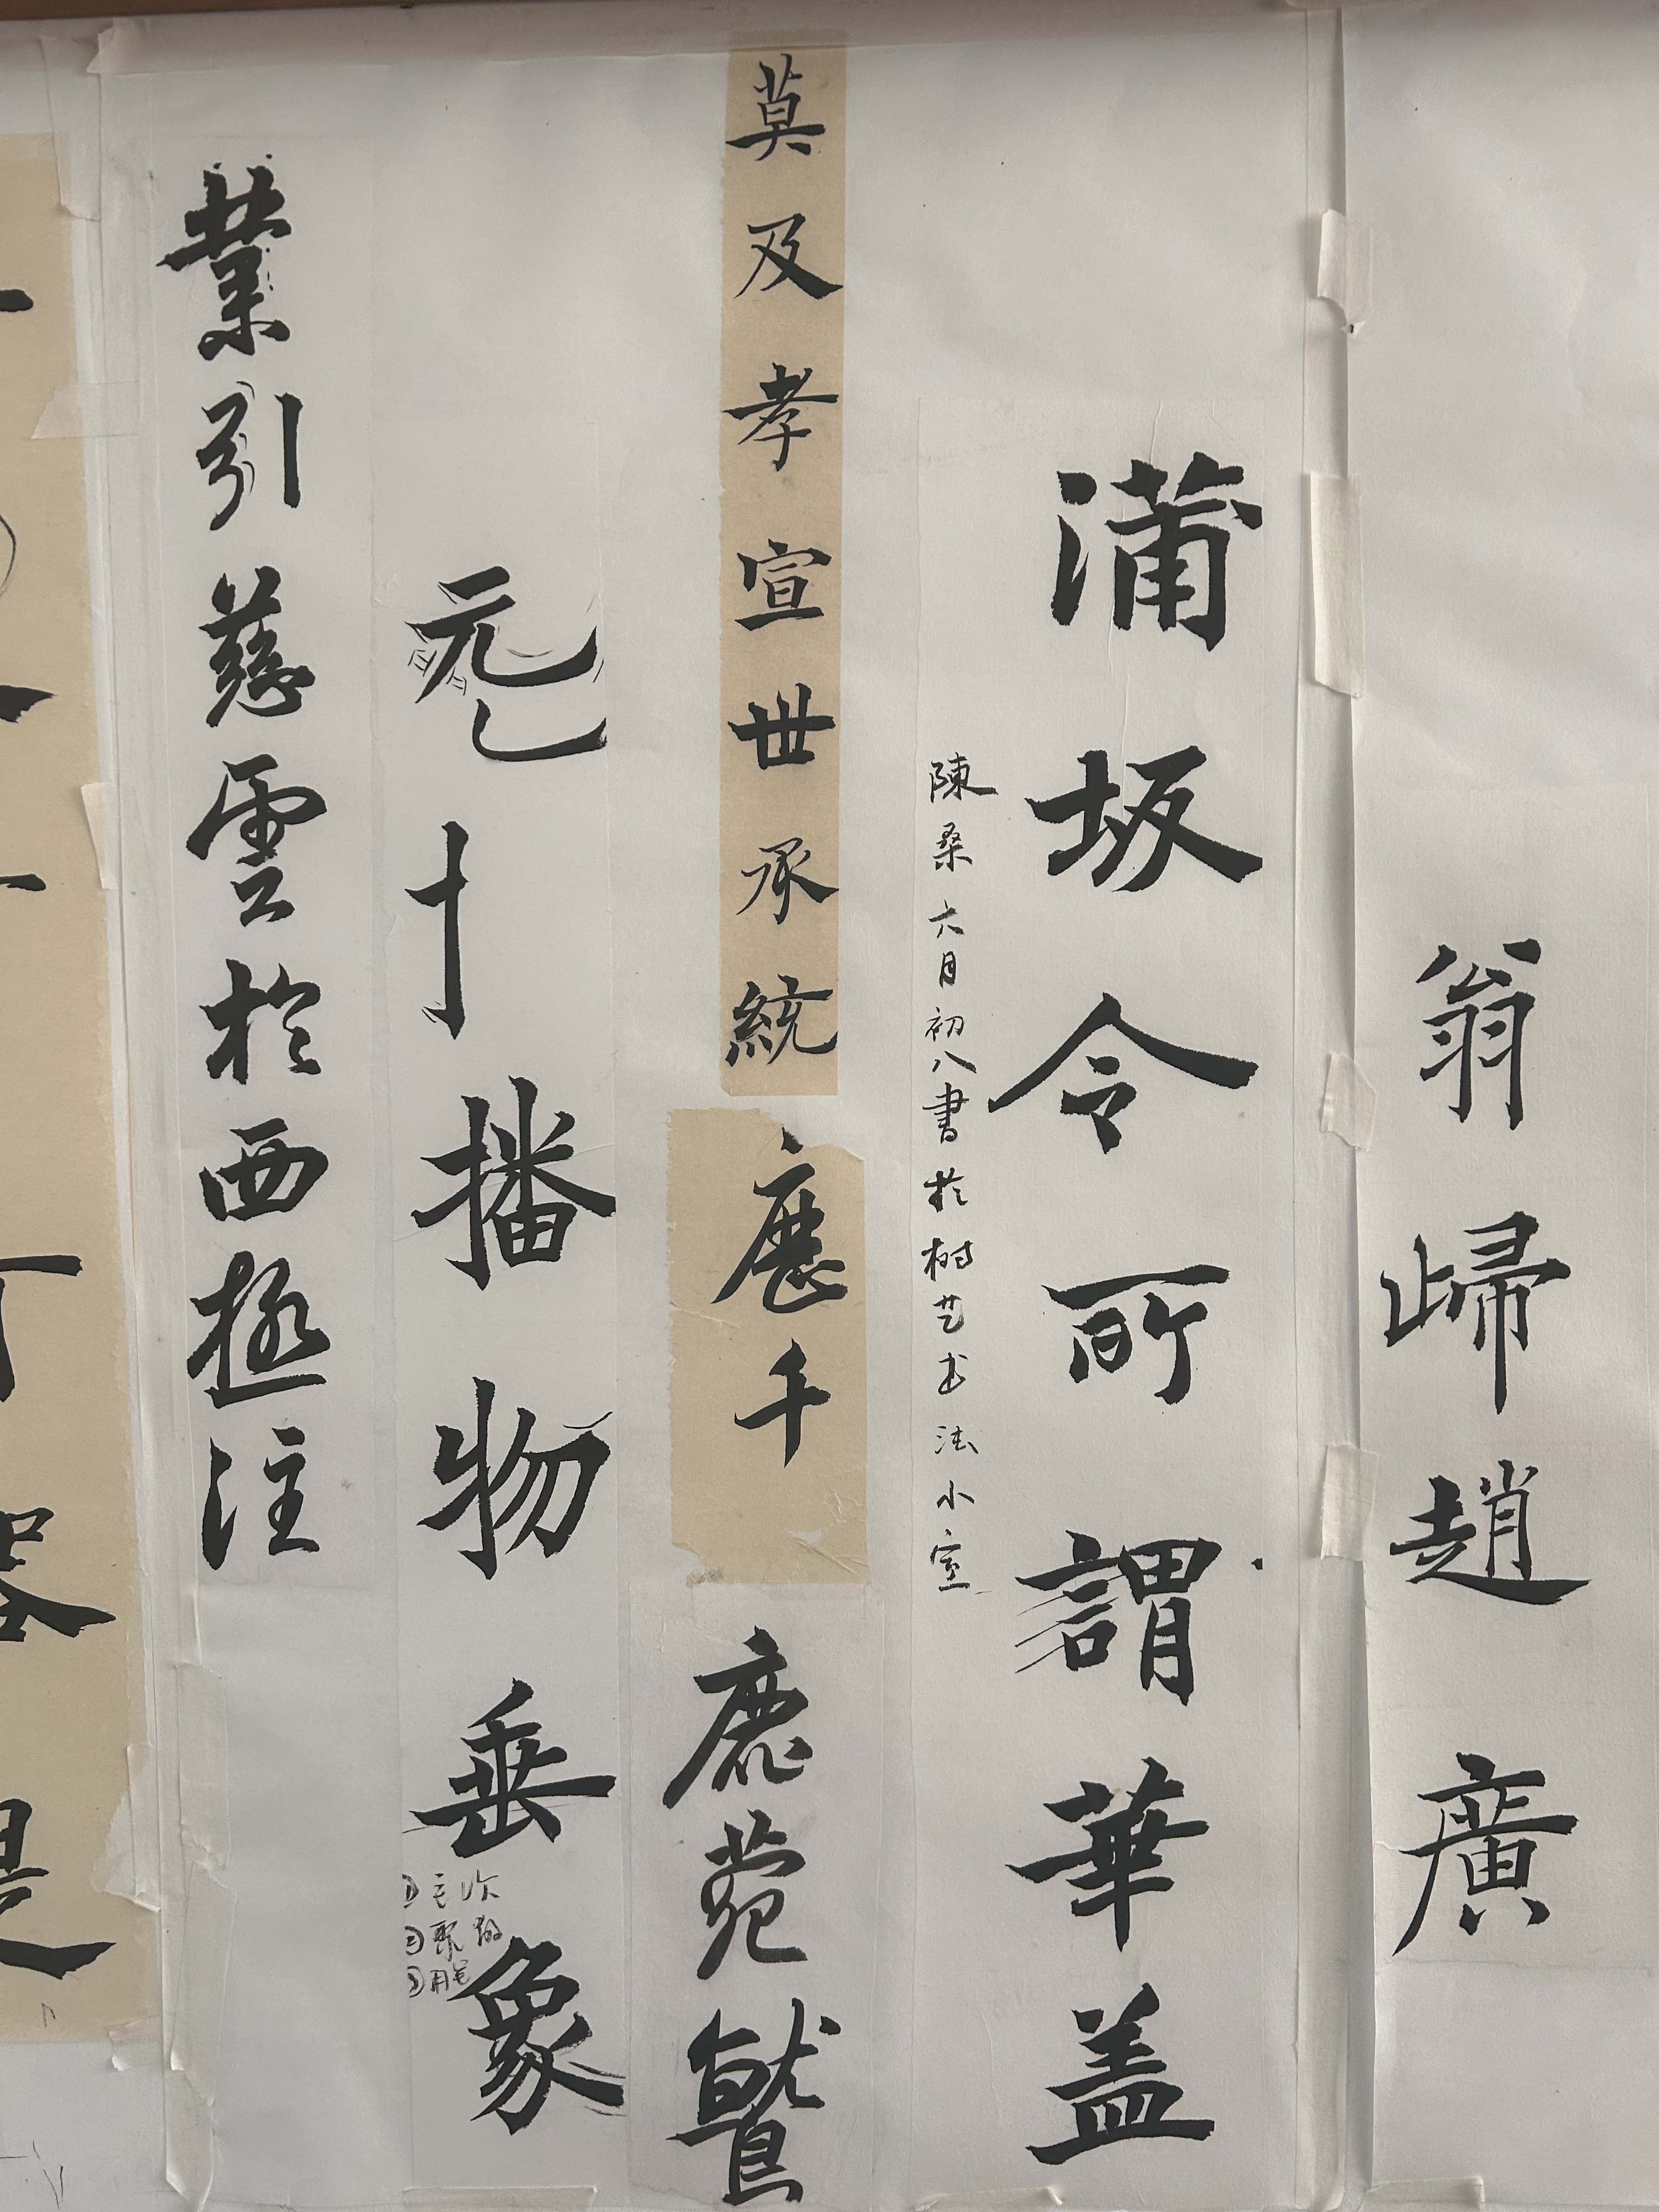 翁歸趙廣
蒲坂令所謂華盖
陳桑六月初八書於树艺书法小室
莫及孝宣世承統
歷千
鹿苑鷲
元
十播物垂象
①主次
業引慈雲於西極注